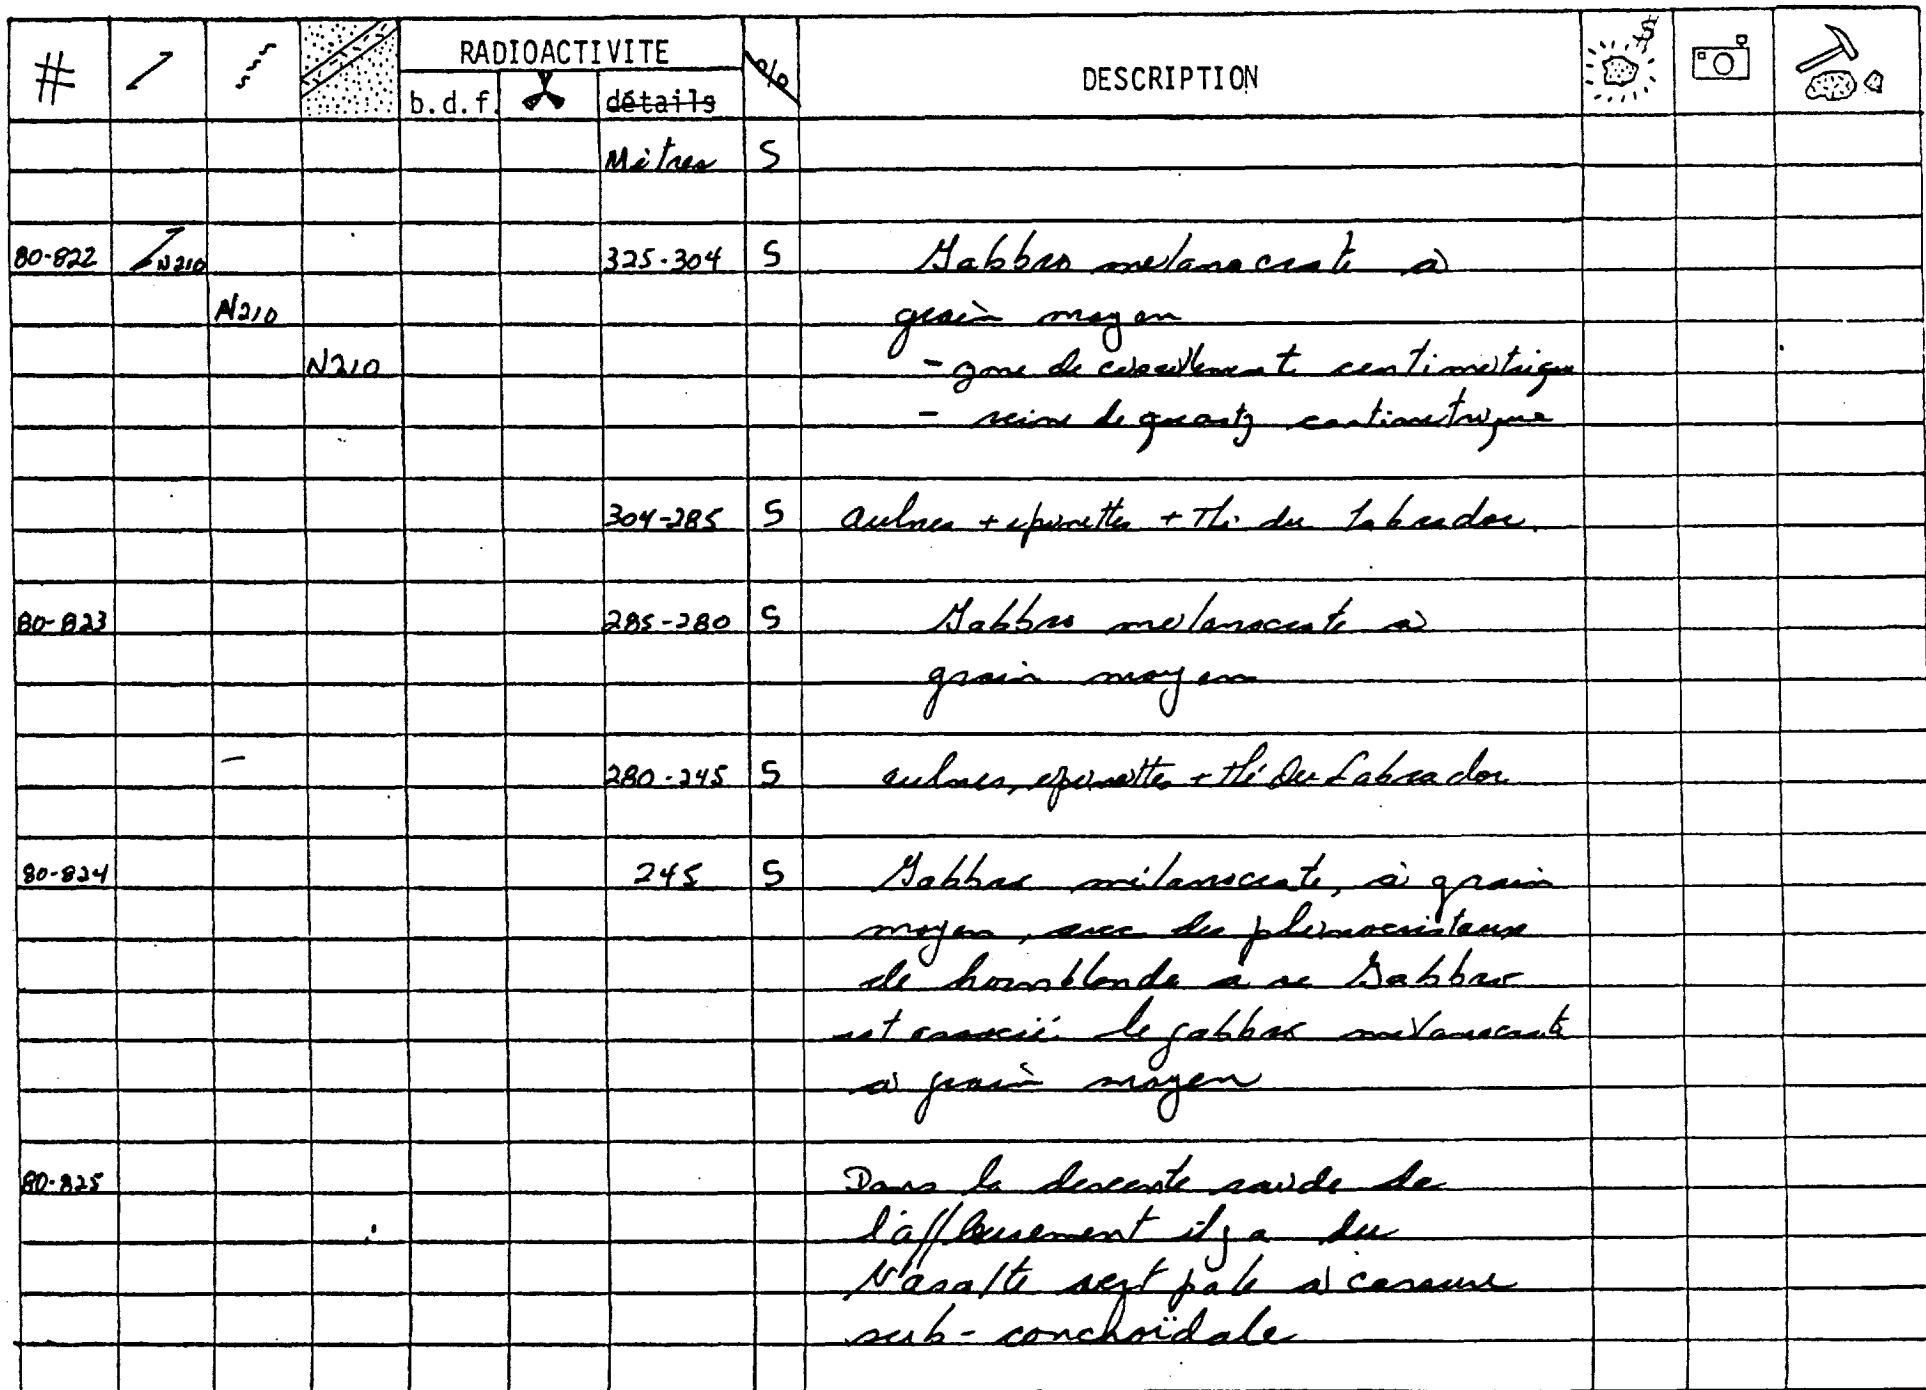 # RADIOACTIVITE % DESCRIPTION $
b.d.f. détails
Mètres S
80-822 N210 325-304 S Gabbro mélanocrate à
N210 grain moyen
N210 - zone de cisaillement centimétrique
- veine de quartz centimétrique
304-285 S aulnes + épinettes + Thé du Labrador.
80-823 285-280 S Gabbro mélanocrate à
grain moyen
280-245 S aulnes, épinettes + thé du Labrador
80-824 245 S Gabbro mélanocrate, à grain
moyen, avec des phénocristaux
de hornblende à ce Gabbro
est associé le gabbro mélanocrate
à grain moyen
80-825 Dans la descente raide de
l'affleurement il y a du
Basalte vert pale à cassure
sub-conchoïdale